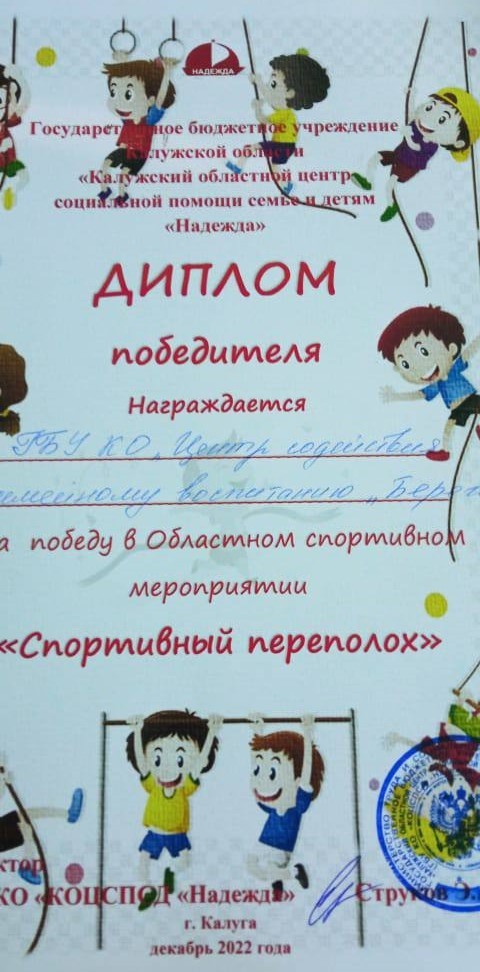 НАДЕЖДА
Государственное бюджетное учреждение
Калужской области
«Калужский областной центр
социальной помощи семье и детям
«Надежда»
ДИПЛОМ
победителя
Награждается
ГБУ КО „Центр содействия
семейному воспитанию „Берег
а победу в Областном спортивном
мероприятии
«Спортивный переполох»
ктор
КО «КОЦСПСД «Надежда» Струков Э.
г. Калуга
декабрь 2022 года